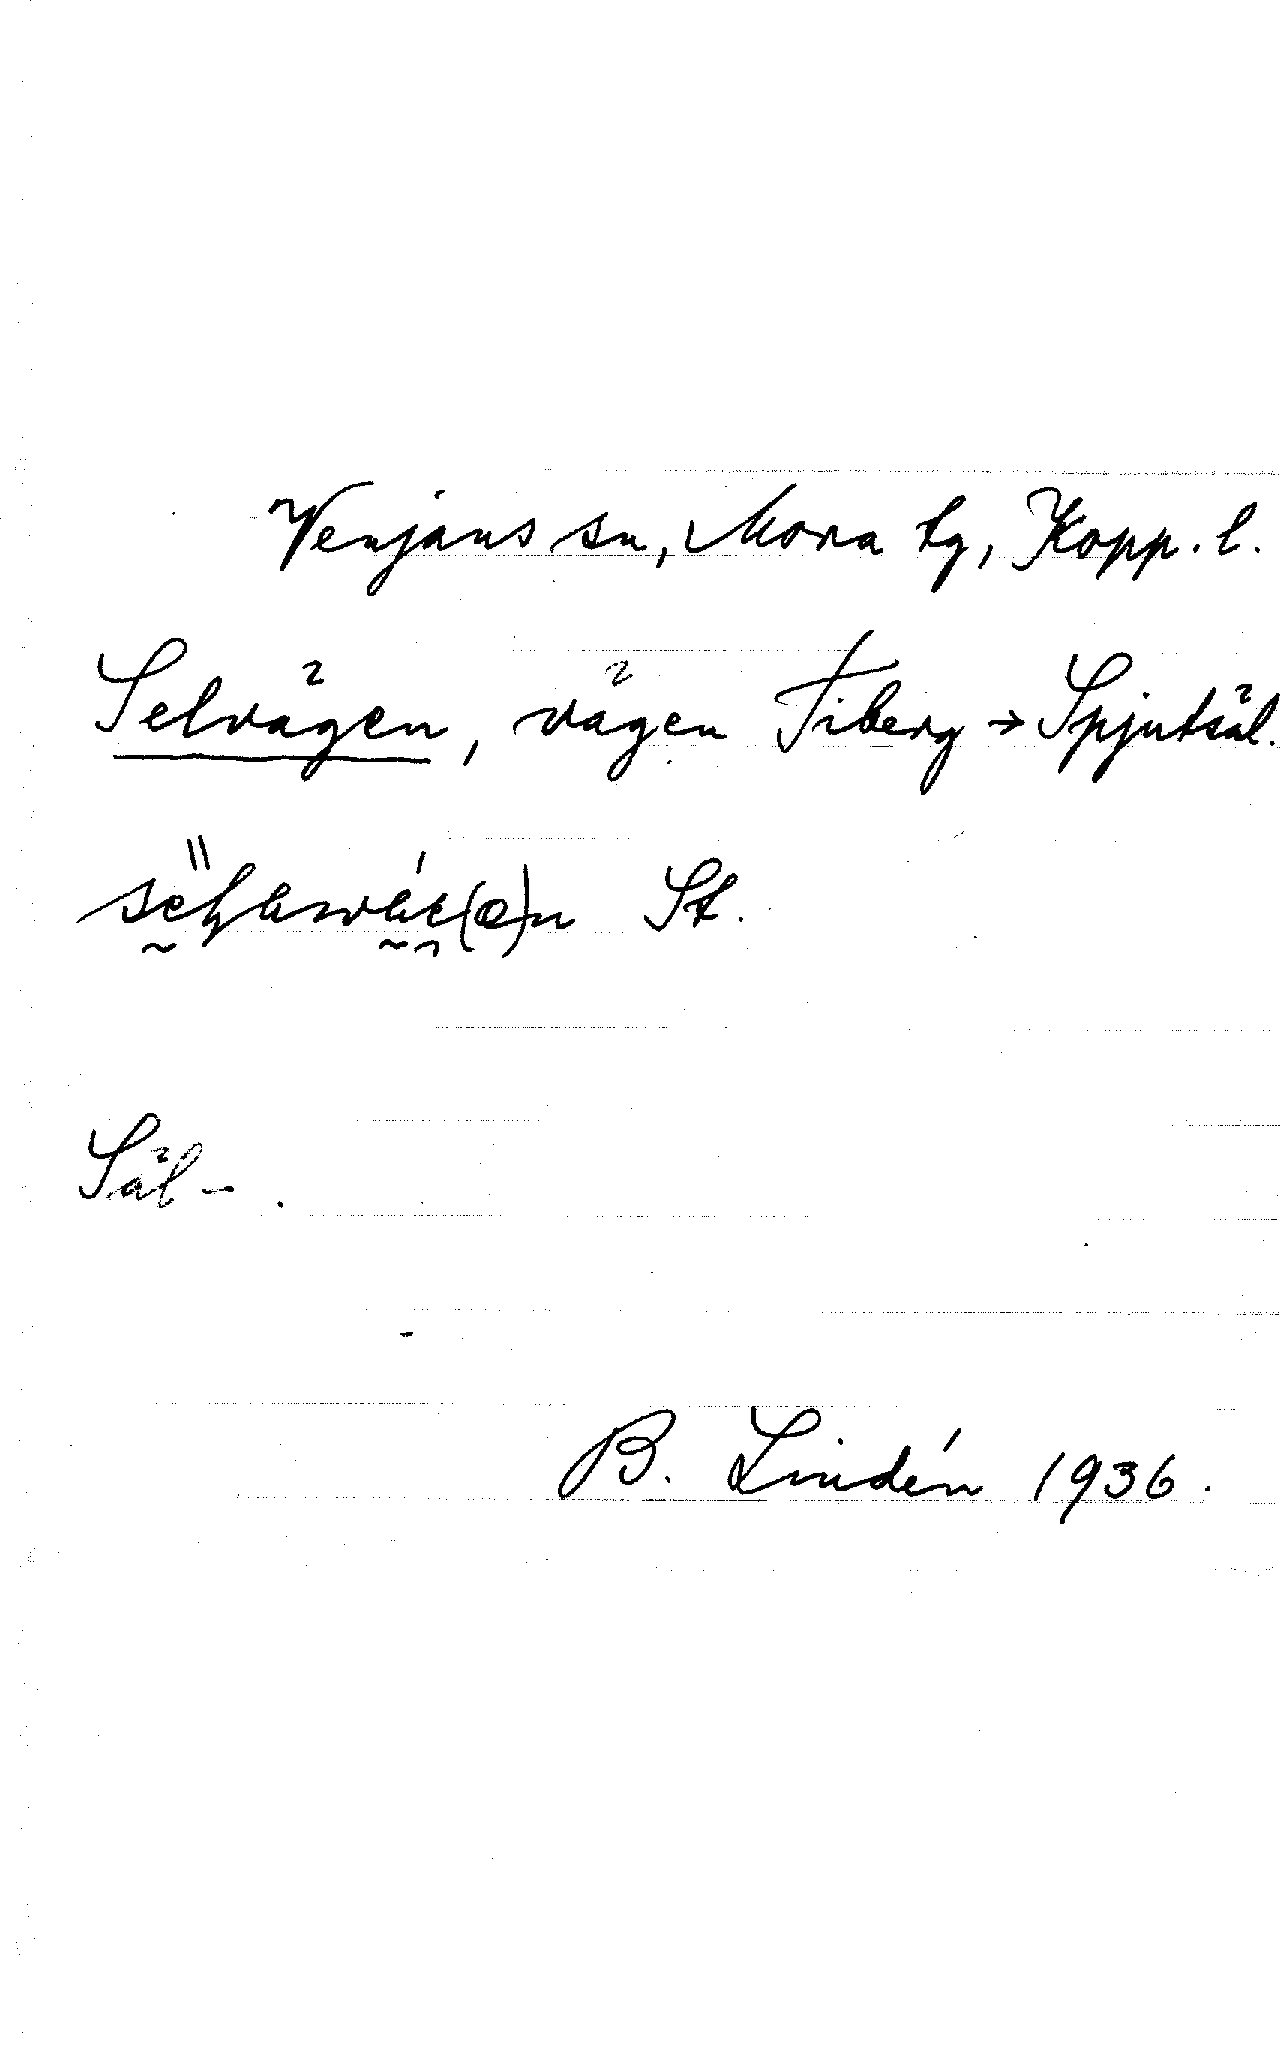 Venjans sn, Mora tg, Kopp. l.
Selvägen, vägen Fiberg → Spjutsäl.
St.
Säl-.
B. Lindén 1936.